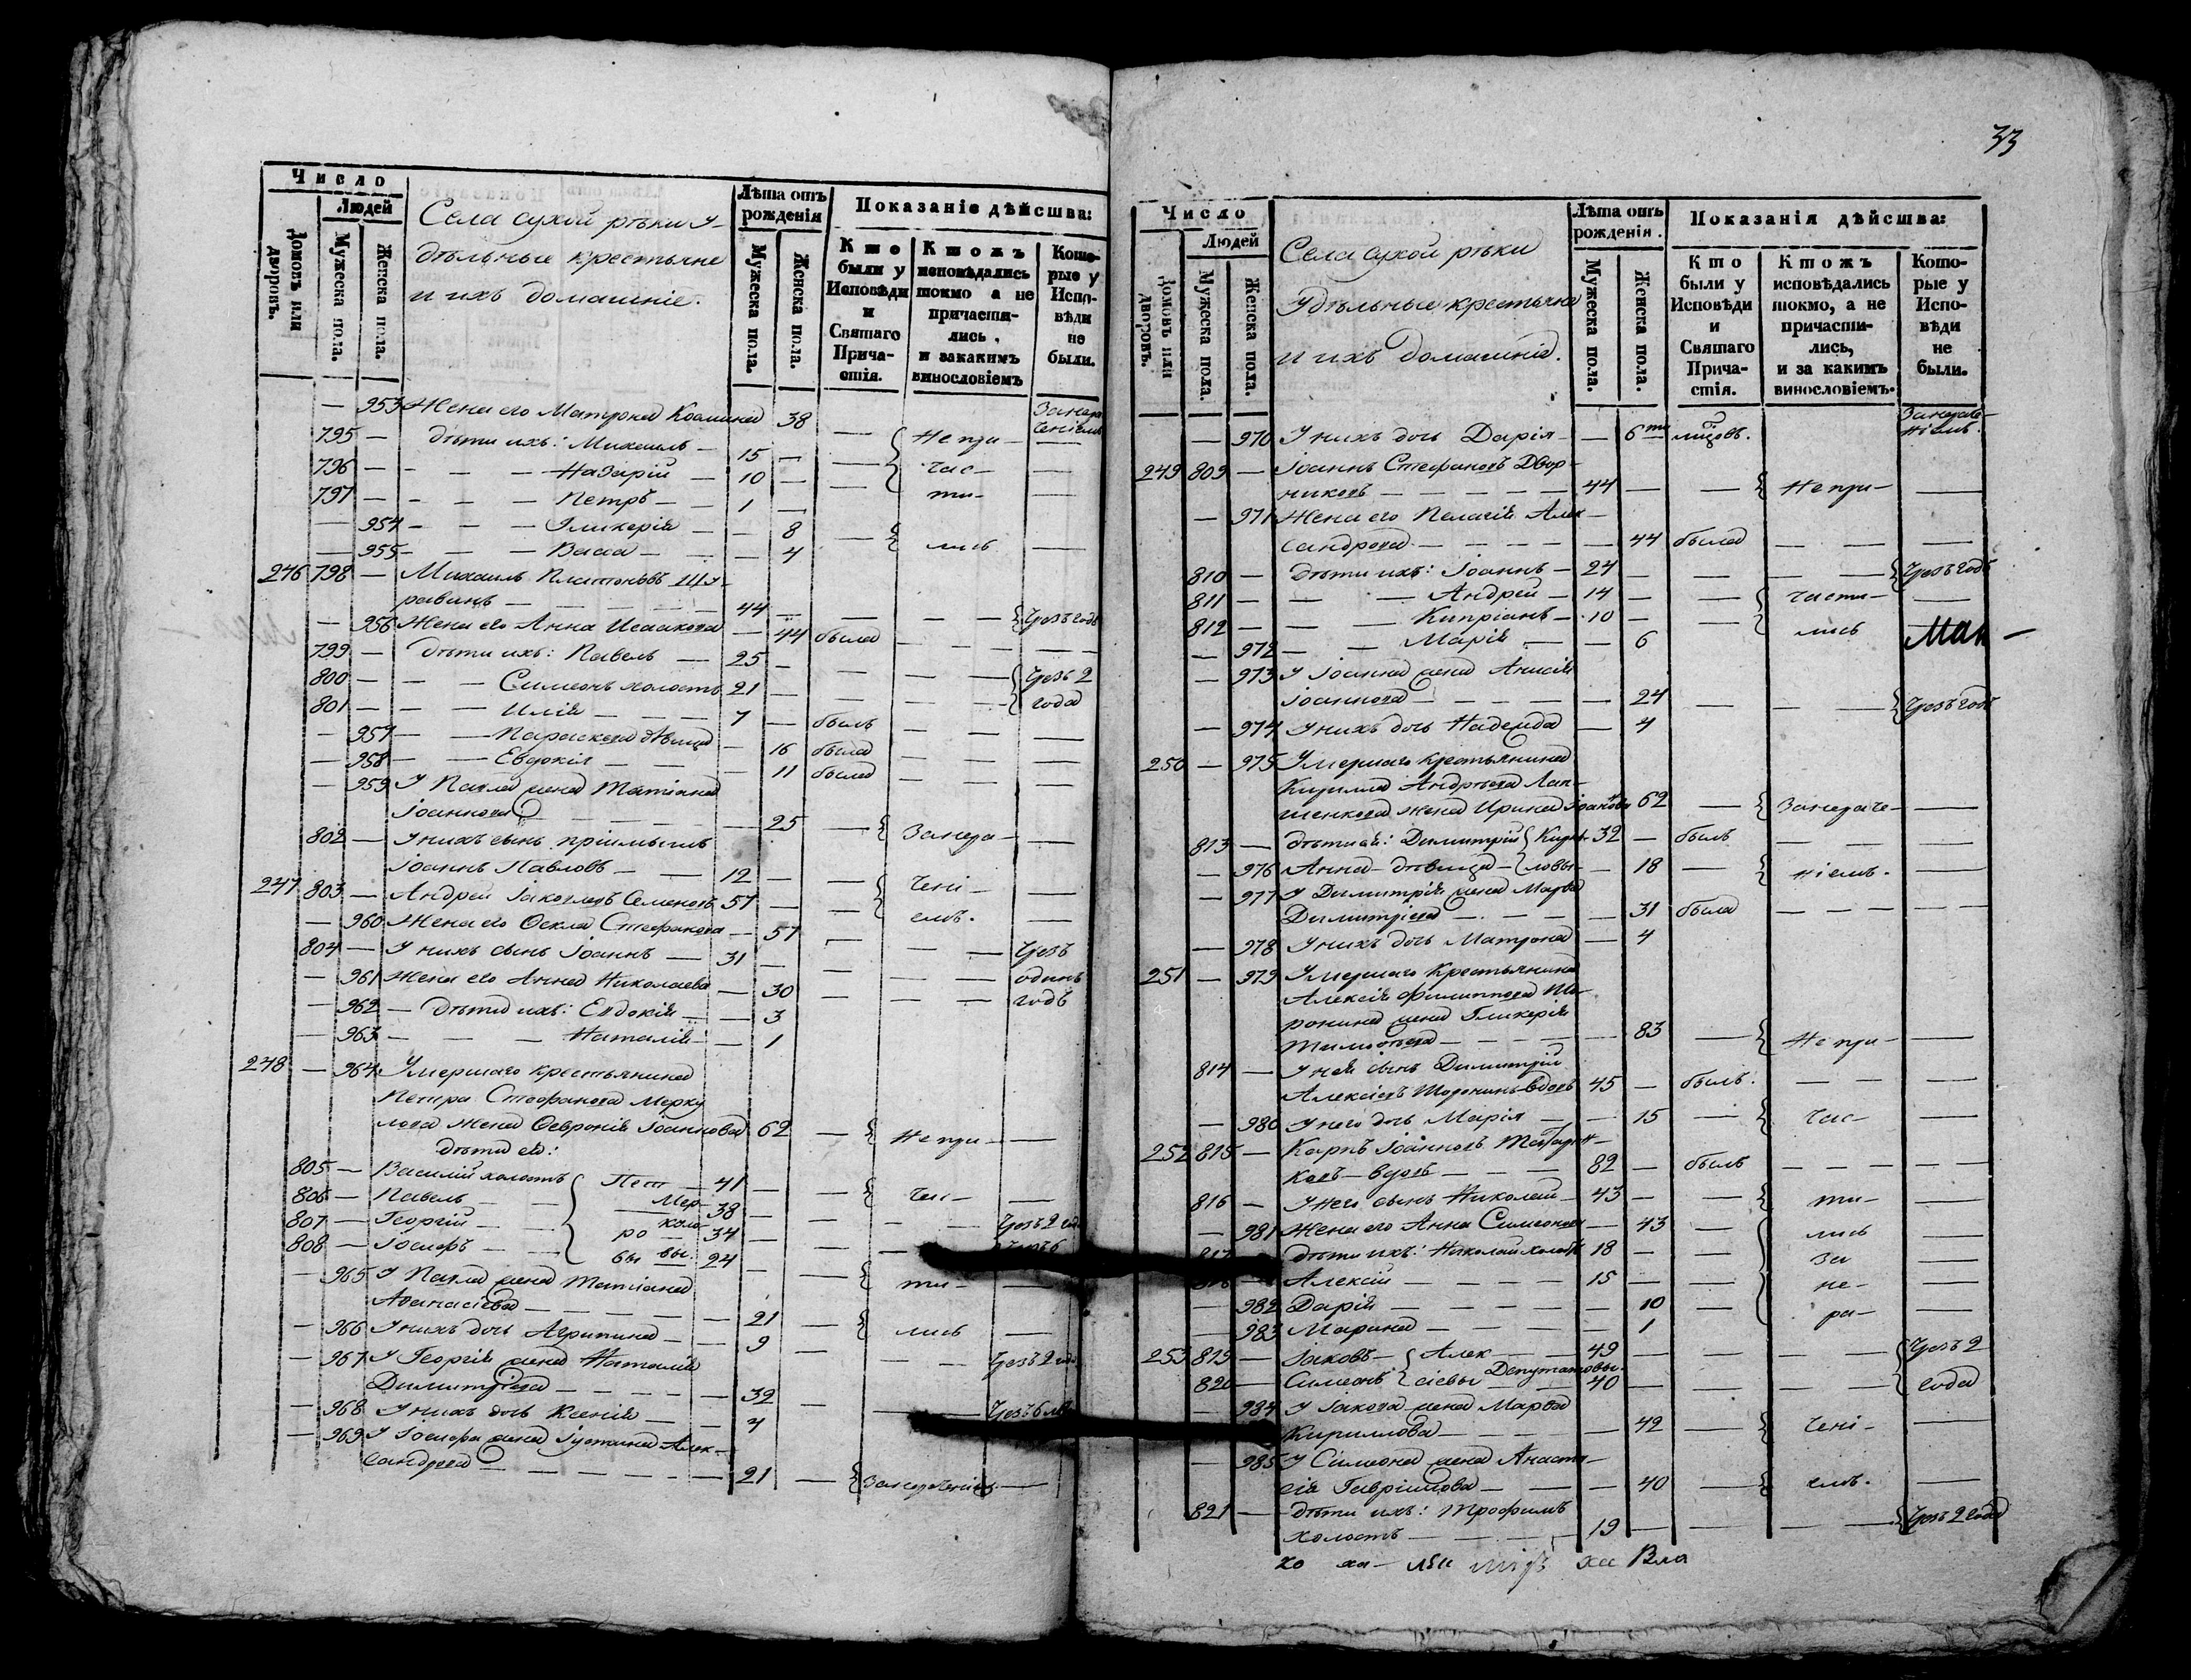 Число
Людей
Домовъ или дворовъ.
Мужеска пола.
Женска пола.
Села сухой рѣки У-
дѣльные крестьяне
и ихъ домашніе.
Лѣта отъ рожденія
Мужеска пола.
Женска пола.
Показаніе дѣйства:
Кто были у Исповѣди и Святаго Прича-стія.
Ктожъ исповѣдались токмо а не причасти-лись, и закакимъ винословіемъ
Кото-рые у Испо-вѣди не были.
— 953 Жена его Матрона Козмина 38
795 — дѣти ихъ: Михаилъ — 15 — — Непри- —
796 — — — Назарій — 10 — — час- —
797 — — — Петръ — 1 — — ти- —
— 954 — — Гликерія — — 8
— 955 — — Васса — — 4 — лись —
246 798 — Михаилъ Платоновъ Шу-
равинъ — 44 — — — Чрезъ годъ
— 956 Жена его Анна Исаакова — 44 была — —
799 — дѣти ихъ: Павелъ — 25 — — —
800 — — Симеонъ холостъ 21 — — — Чрезъ 2
801 — — Илія — 7 — былъ — года
— 957 — Параскева дѣвица — 16 была — —
— 958 — Евдокія — — 11 была — —
— 959 У Павла жена Татіана
Іоаннова — — 25 — Занера- —
802 — У нихъ сынъ пріимышъ
Іоаннъ Павловъ — 12 — —
247 803 — Андрей Іаковлевъ Семеновъ 57 — — чені- —
— 960 Жена его Ѳекла Стефанова — 57 — емъ. —
804 — У нихъ сынъ Іоаннъ — 31 — — — Чрезъ
— 961 Жена его Анна Николаева — 30 — — одинъ
— 962 — дѣти ихъ: Евдокія — — 3 — — годъ
— 963 — — Наталія — — 1
248 — 964 Умершаго крестьянина
Петра Стефанова Мерку
лова жена Ѳевронія Іоаннова 62 — Непри- —
дѣти ея:
805 — Василій холостъ Пет — 41 — — час- —
806 — Павелъ — Мер- 38 — —
807 — Георгій — ро — 34 — — Чрезъ 2
808 — Іосифъ — вы — вы. 24 — —
— 965 У Павла жена Татіана
Аѳанасіева — — 21 — ти- —
— 966 У нихъ дочь Агрипина — 9 — лись —
— 967 У Георгія жена Наталія
Димитріева — — 32 — — Чрезъ 2
— 968 У нихъ дочь Ксенія — — 4
— 969 У Іосифа жена Іустина Алек-
сандрова — — 21 — —
33
Число
Людей
Домовъ или дворовъ.
Мужеска пола.
Женска пола.
Села сухой рѣки
Удѣльные крестьяне
и ихъ домашніе.
Лѣта отъ рожденія.
Мужеска пола.
Женска пола.
Показанія дѣйства:
Кто были у Исповѣди и Святаго Прича-стія.
Ктожъ исповѣдались токмо, а не причасти-лись, и за какимъ винословіемъ.
Кото-рые у Испо-вѣди не были.
— 970 У нихъ дочь Дарія — — 6
249 809 — Іоаннъ Стефановъ Двор-
никовъ — 44 — — Непри- —
— 971 Жена его Пелагія Алек-
сандрова — — 44 была — —
810 — дѣти ихъ: Іоаннъ — 24 — — — Чрезъ годъ
811 — — Андрей — 14 — — части- —
812 — — Кипріанъ — 10 — — лись —
— 972 — Марія — — 6
— 973 У Іоанна жена Анисія
Іоаннова — — 24 — — Чрезъ годъ
— 974 У нихъ дочь Надежда — 4
250 — 975 Умершаго крестьянина
Кирилла Андреева Лап-
шенкова жена Ирина 62 — Занераче- —
813 — дѣти ея: Димитрій 32 — былъ — —
— 976 Анна дѣвица — 18 — ніемъ. —
— 977 У Димитрія жена Марѳа
Димитріева — — 31 была — —
— 978 У нихъ дочь Матрона — 4
251 — 979 Умершаго крестьянина
Алексія Филиппова Шо-
ронина жена Гликерія
Тимоѳеева — — 83 — Непри- —
814 — У нея сынъ Димитрій
Алексіевъ Шоронинъ вдовъ 45 — былъ. — —
— 980 У него дочь Марія — — 15 — час- —
252 815 — Карпъ Іоанновъ
ковъ — вдовъ — 82 — былъ — —
816 — У него сынъ Николай — 43 — — ти- —
— 981 Жена его Анна Симеонова — 43 — лись —
817 дѣти ихъ: Николай холостъ 18 — — за —
818 — Алексій — 15 — — не- —
— 982 Дарія — — 10 — ра- —
— 983 Марина — — 1
253 819 — Іаковъ — Алек — 49 — — — Чрезъ 2
820 — Симеонъ сіевы Депутатовы. 40 — — — года
— 984 У Іакова жена Марѳа
Кириллова — — 42 — чені- —
— 985 У Симеона жена Анаста-
сія Гавріилова — — 40 — емъ. —
821 — дѣти ихъ: Трофимъ
холостъ — 19 — — — Чрезъ 2 года